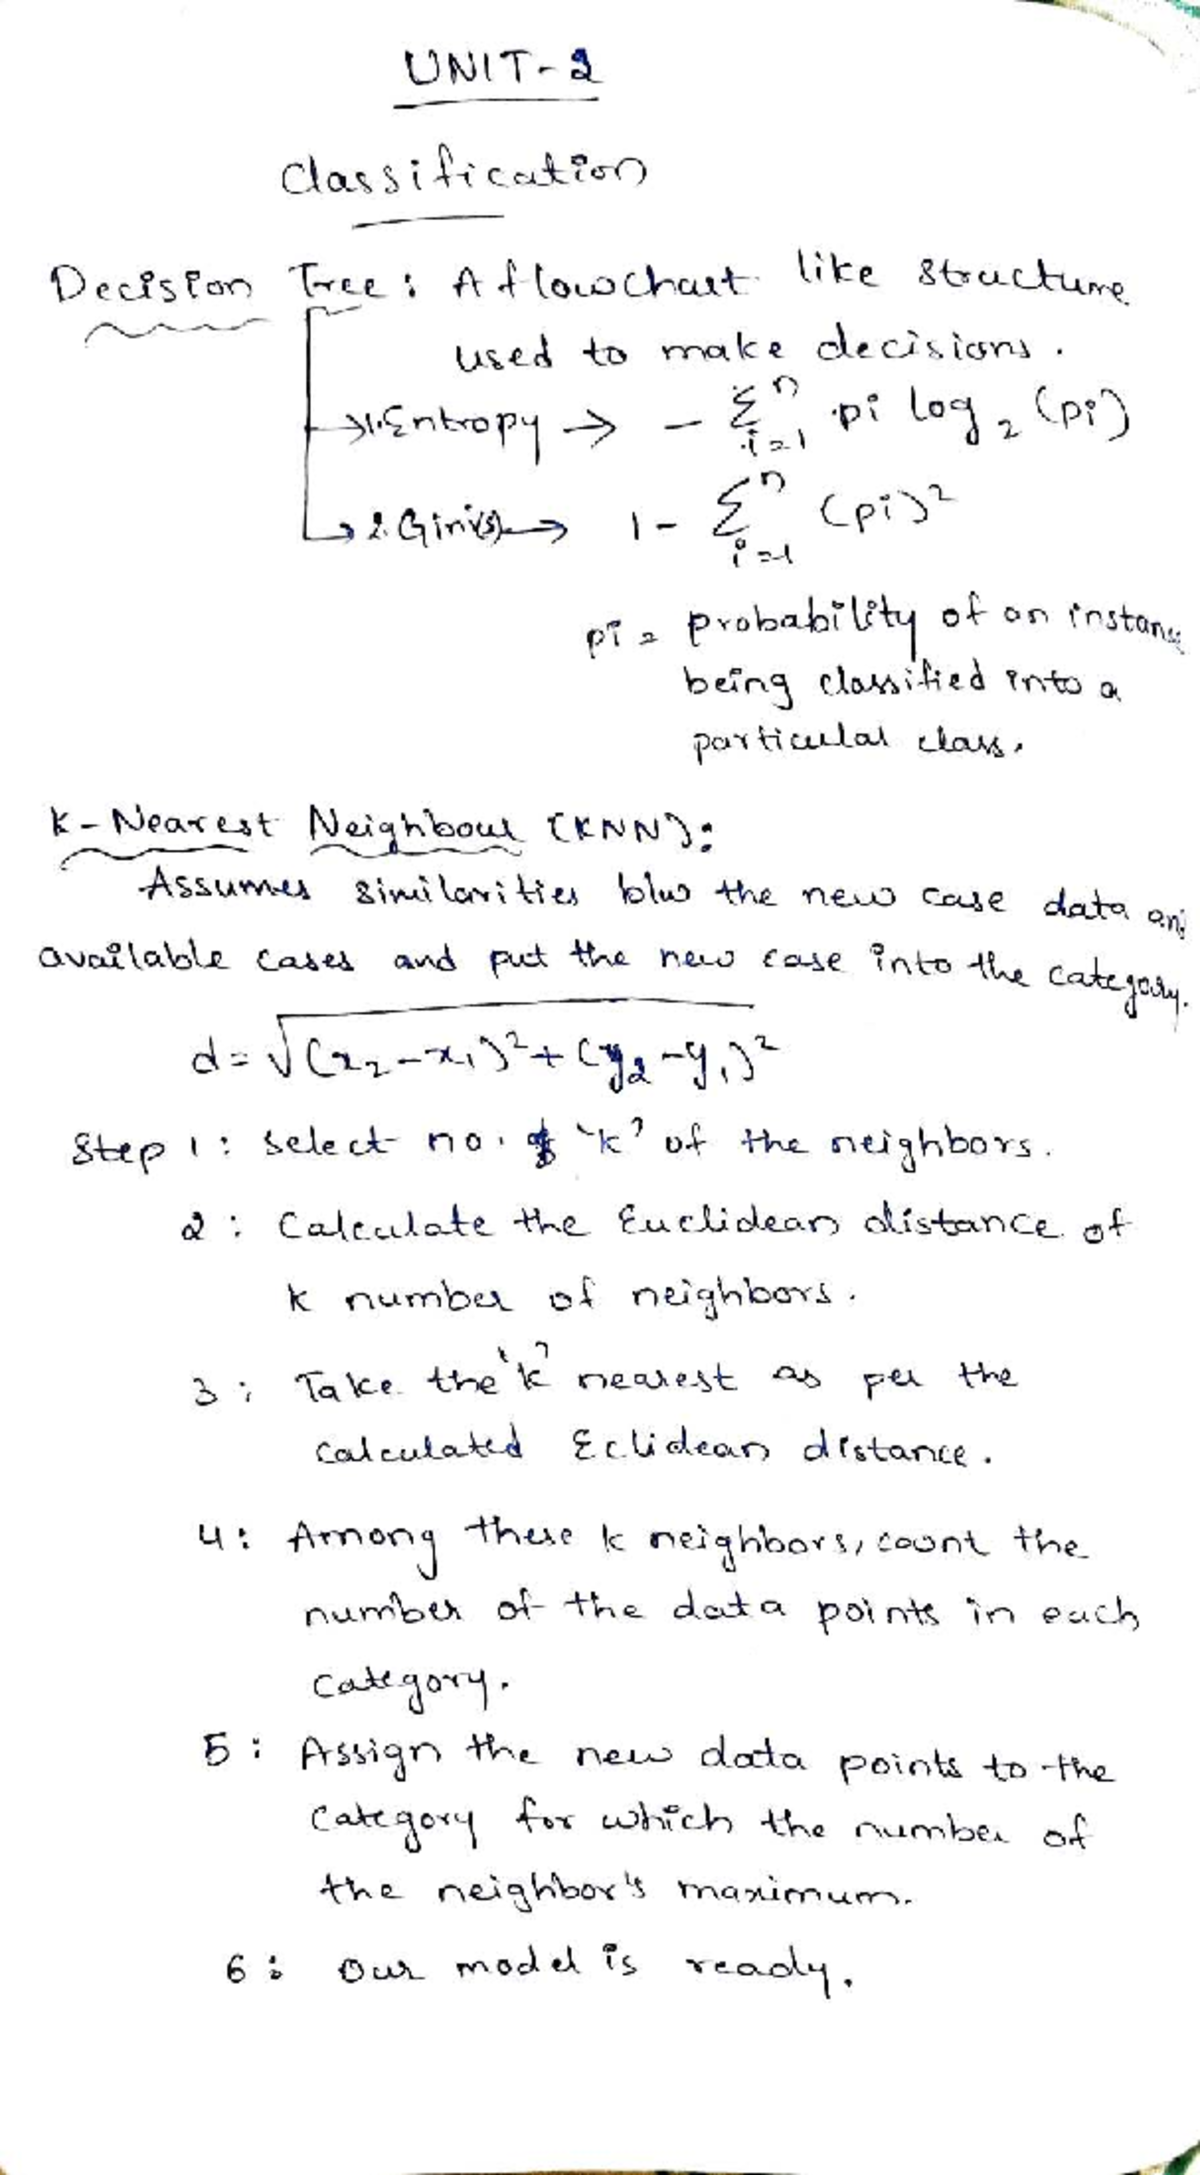 UNIT-2
Classification
Decision Tree: A flowchart like structure
used to make decisions.
→1.Entropy → - Σ^n_{i=1} pi log₂ (pi)
→ 2.Gini(s) → 1 - Σ^n_{i=1} (pi)²
pi = probability of an instance
being classified into a
particular class.
K-Nearest Neighbour (KNN):
Assumes similarities b/w the new case data and
available cases and put the new case into the category.
d = √(x₂-x₁)²+(y₂-y₁)²
Step 1: Select no. of 'k' of the neighbors.
2: Calculate the Euclidean distance of
k number of neighbors.
3: Take the 'k' nearest as per the
calculated Eclidean distance.
4: Among these k neighbors, count the
number of the data points in each
category.
5: Assign the new data points to the
category for which the number of
the neighbor's maximum.
6: Our model is ready.